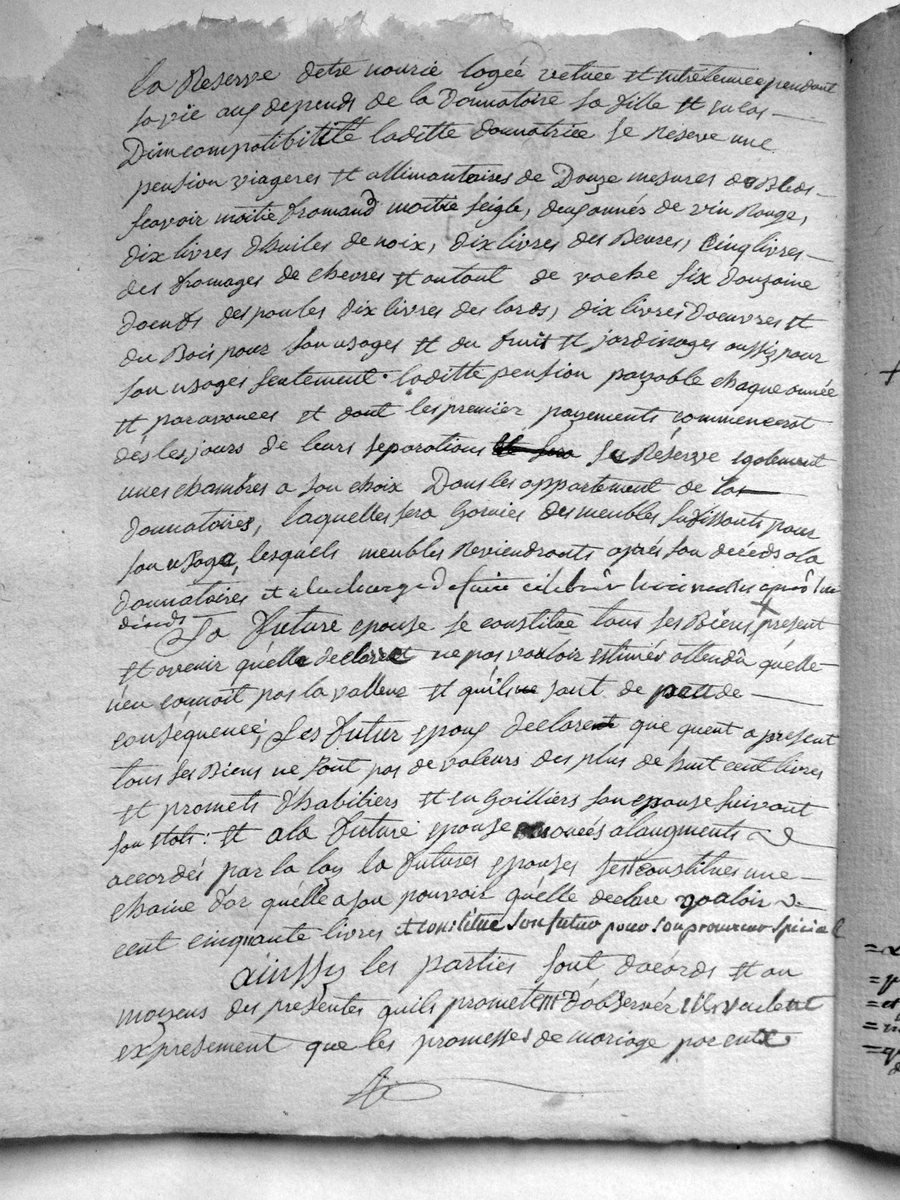 la Reserve detre nourie logée vetuee et entretenuee pendant
sa vie aux depends de la Donnatoire sa fille et en cas
Dimcompatibilité laditte donnatrice se Reserve une
pension viageres et allimantaires de Douze mesures de Bleds
scavoir moitie fromand moitie seigle, deux annés de vin Rouge,
dix livres dhuiles de noix, dix livres des Beures, Cinq livres
des fromages de chevres et autant de vache six douzaine
doeufs des poules dix livres des lards, dix livres doeuvres et
du Bois pour son usages et du fruit et jardinages aussis pour
son usages seulement. laditte pension payable chaque année
et par avances et dont les premier payements commencerat
dès les jours de leurs separations se Réserve egalement
unes chambres a son choix Dans les appartement de las
donnatoires, laquelles sera Garnies des meubles suffissants pour
son usage, lesquels meubles Reviendronts après son décéds a la
donnatoires et a la charge de faire célébrer
décéds
La future epouse se constitue tous ses Biens present
et avenir quélle declaret ne pas vouloir estimés attendû quélle
nén connoit pas la valleur et quils ne sont de peu de
conséquence, Les futur epoux declarent que quent a present
tous ses Biens ne sont pas de valeurs des plus de huit cent livres
et promets dhabiliers et en Goilliers son epouse suivant
son etats: et a la future epouse alaugments
accordés par la loy la futures epouses sest constitues une
chaine d'or quélle a son pouvoir quélle declare valoir
cent cinquante livres et constitue son futur pour son procureur spécial
ainssy les parties sont dacords et au
moyens des presentes quils promettent dóbserver ils veulent
expresement que les promesses de mariage par eux